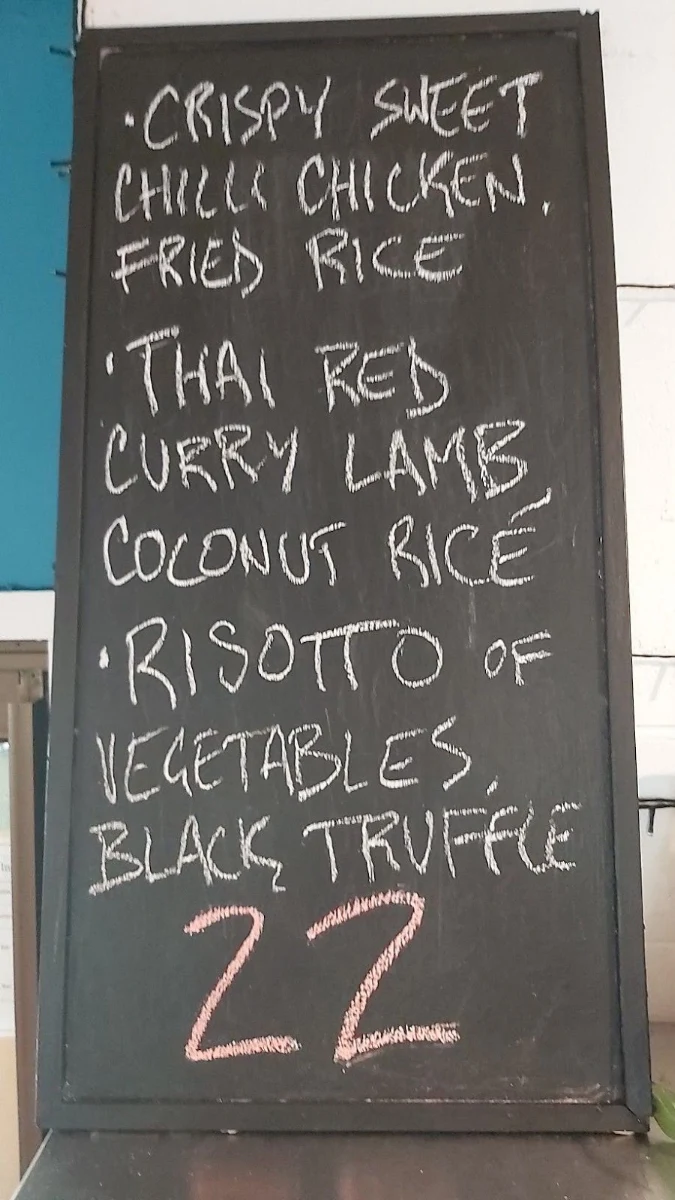 ·CRISPY SWEET
CHILLI CHICKEN,
FRIED RICE
·THAI RED
CURRY LAMB,
COCONUT RICE
·RISOTTO OF
VEGETABLES,
BLACK TRUFFLE
22